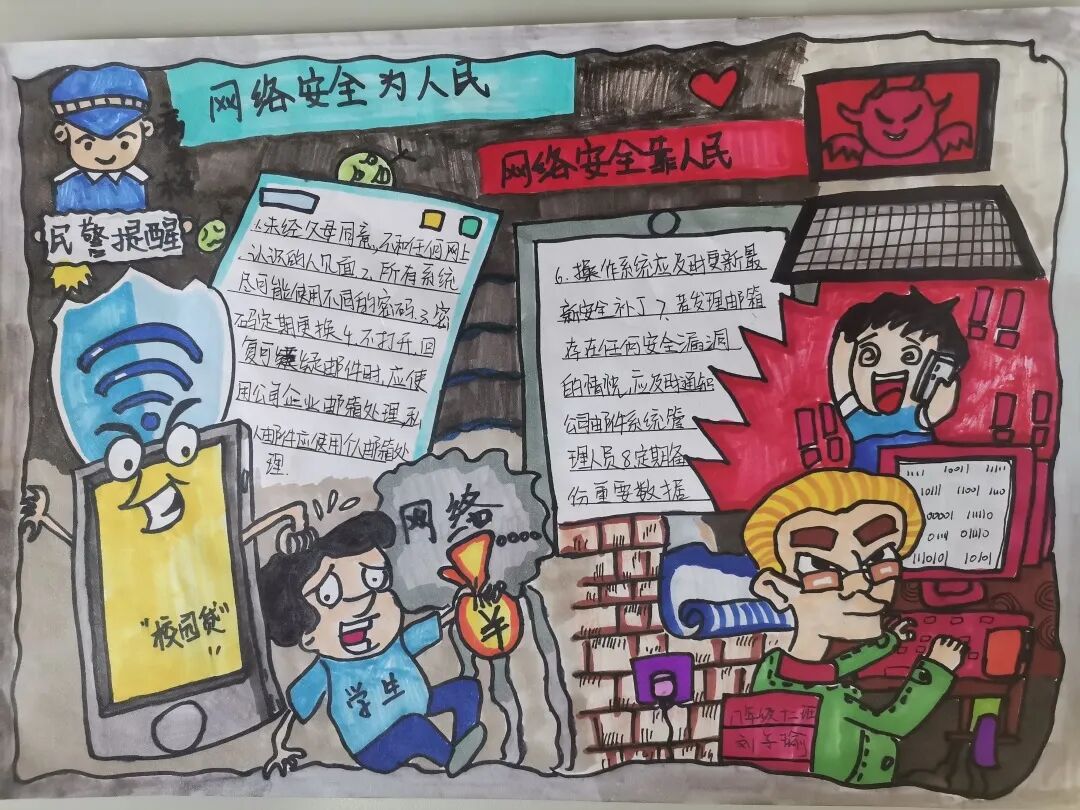 网络安全为人民
网络安全靠人民
民警提醒
1.未经父母同意,不和任何网上
认识的人见面2.所有系统
尽可能使用不同的密码.3.密
码定期更换4.不打开,回
复可疑邮件时,应使
用公司企业邮箱处理,私
人邮件应使用个人邮箱处
理.
6.操作系统应及时更新最
新安全补丁7.若发理邮箱
存在任何安全漏洞
的情忧,应及时通知
公司邮件系统管
理人员8.定期备
份重要数据
网络....
¥
"校园贷"
!!
学生
11111 11001 11111
10111 11001 1110
00001 01110
0111 01110
1110101 10101
八年级十二班
刘子瑜